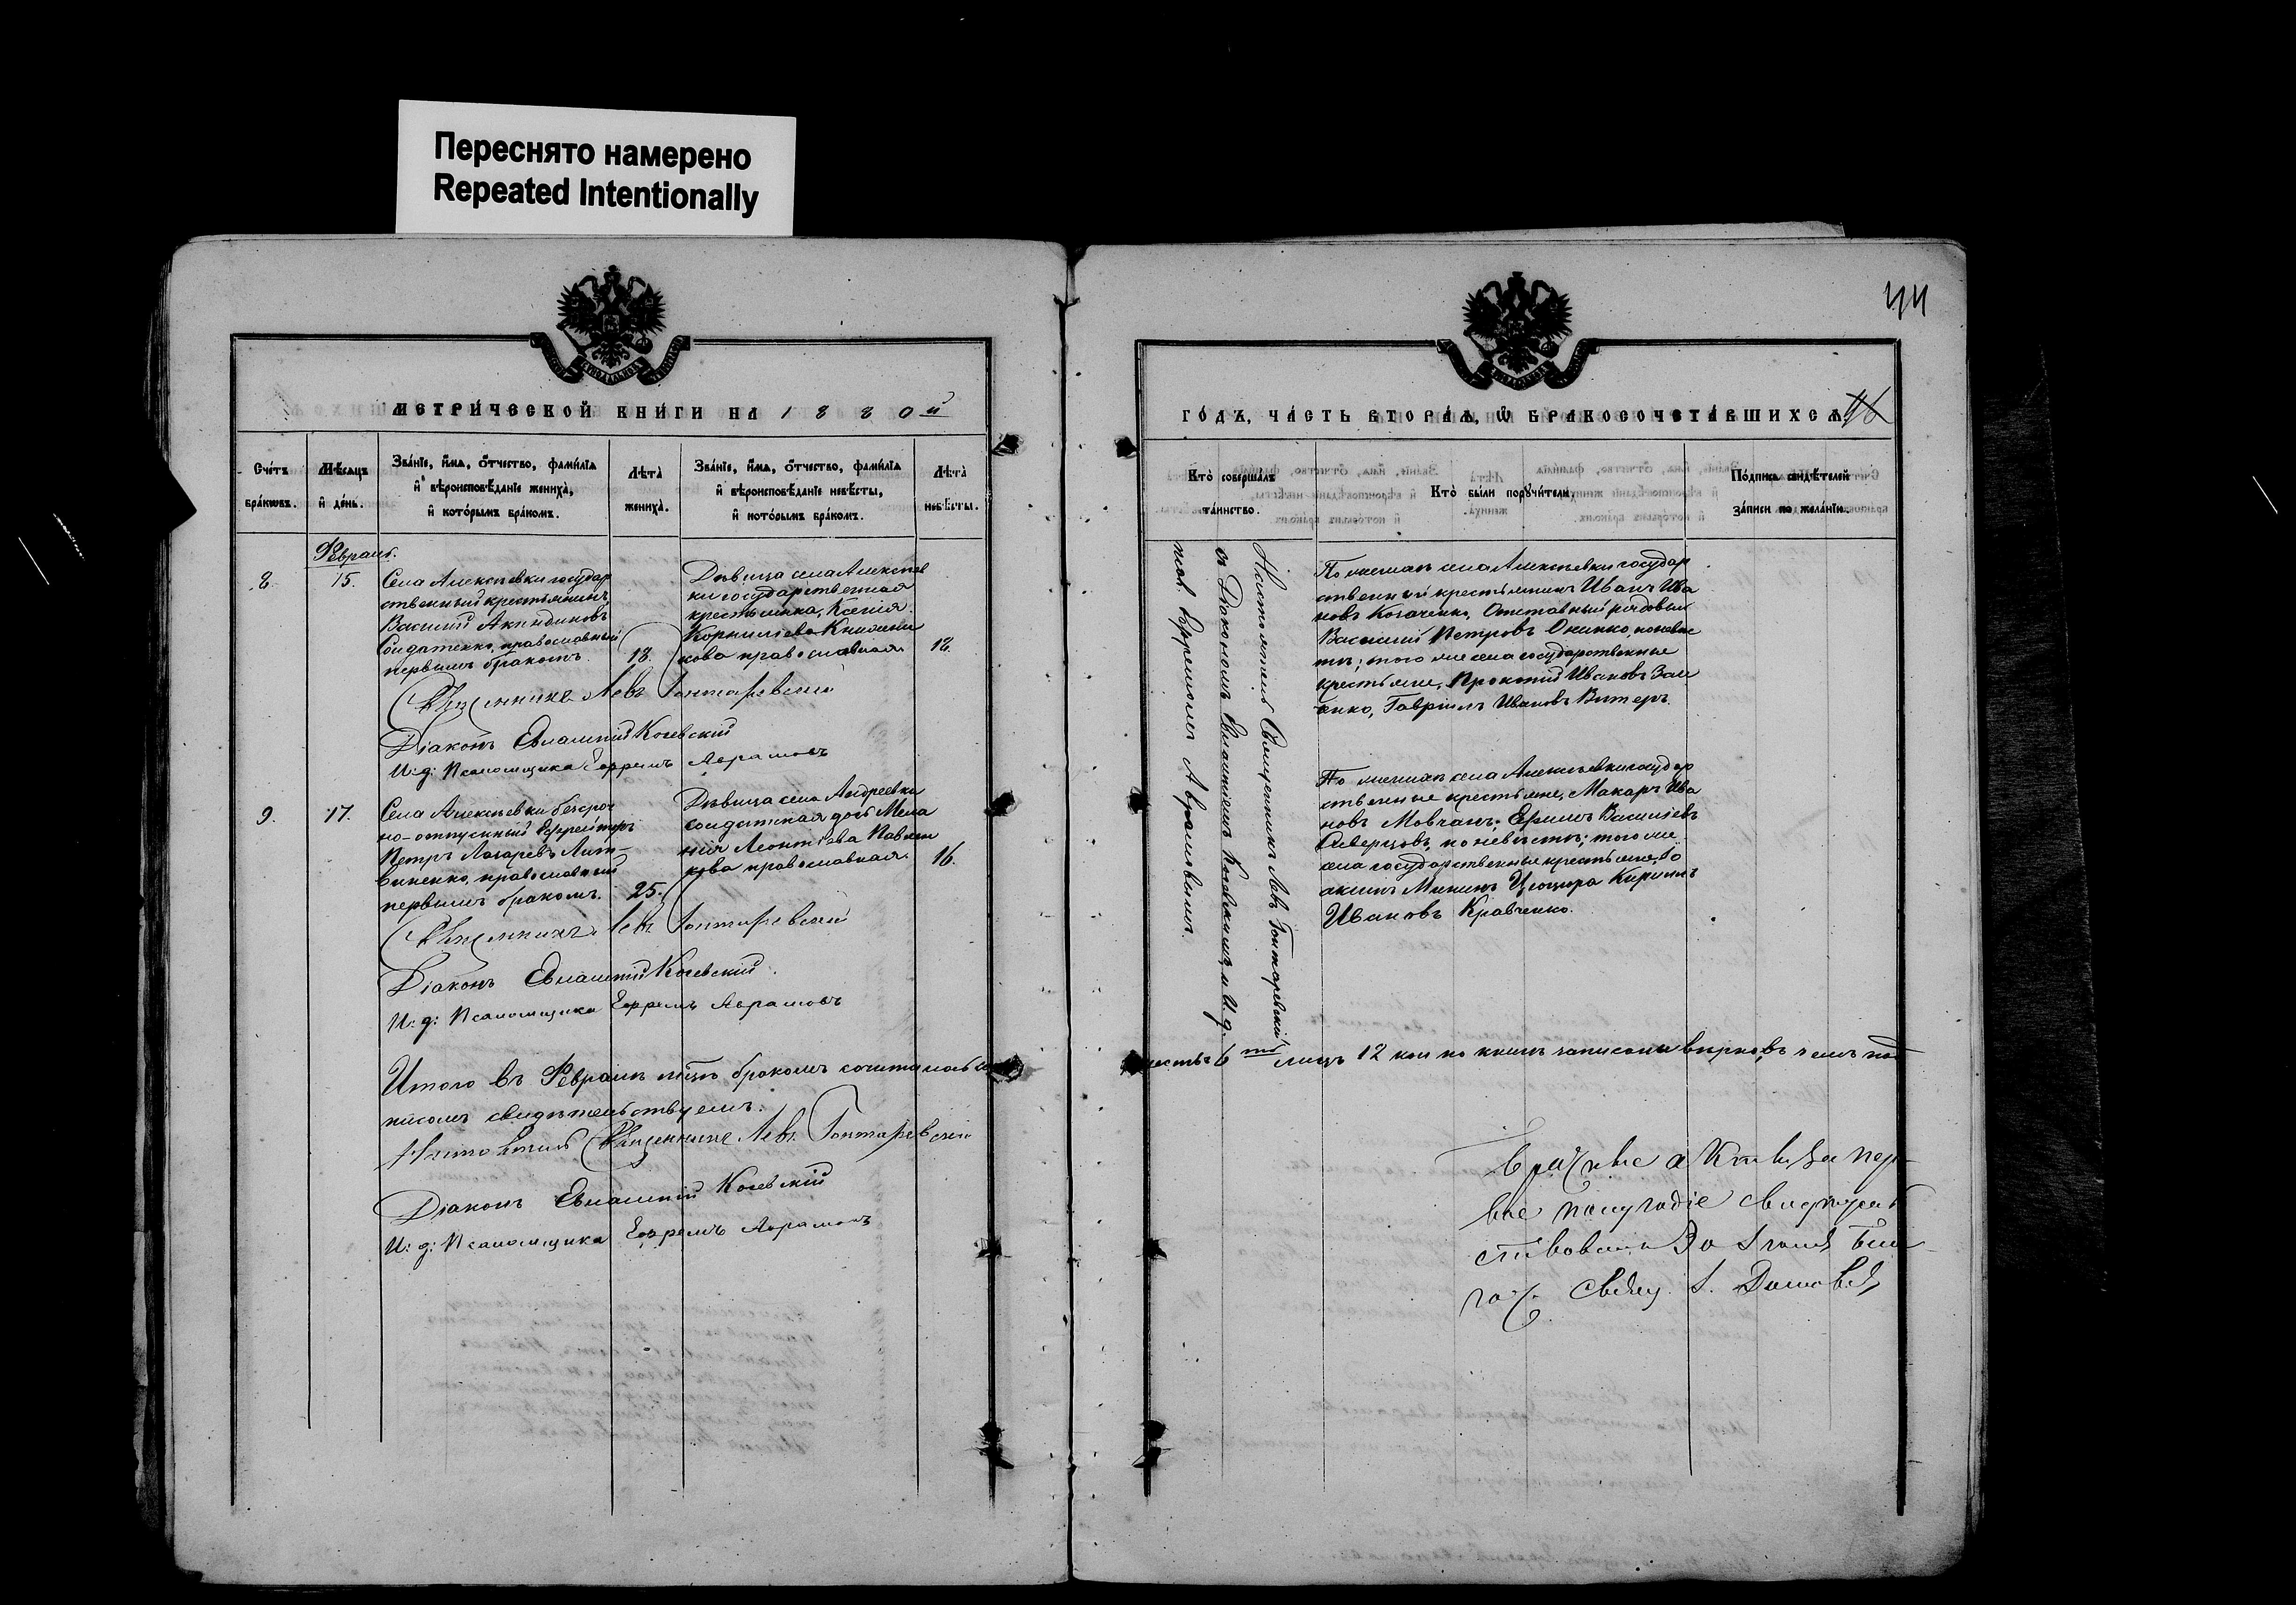 Переснято намерено
Repeated Intentionally
МЕТРИ́ЧЕСКОЙ КНИ́ГИ НА 1880й
Сче́тъ бра́кѡвъ.
Мѣ́сяцъ и҆ де́нь.
Зва́нїе, и҆́мѧ, ѻ҆́тчество, фами́лїѧ
и҆ вѣроисповѣ́данїе жениха̀,
и҆ кото́рымъ бра́комъ.
Лѣта̀
жениха̀.
Зва́нїе, и҆́мѧ, ѻ҆́тчество, фами́лїѧ
и҆ вѣроисповѣ́данїе невѣ́сты,
и҆ кото́рымъ бра́комъ.
Лѣта̀
невѣ́сты.
Февраль.
8.
15.
Села Алексѣевки государ
ственный крестьянинъ
Василій Акиндиновъ
Солдатенко, православный
первымъ бракомъ.
18.
Дѣвица села Алексѣев
ки государственная
крестьянка, Ксенія
Корниліева
кова православная.
18.
Священникъ Левъ Гонтаревскій
Діаконъ Евлампій Косвскій
И: д: Псаломщика Ефремъ Аврамовъ
9.
17.
Села Алексѣевки безсроч
но-отпускный Ефрейторъ
Петръ Лазаревъ Лит-
виненко, православный
первымъ бракомъ.
25.
Дѣвица села Андреевки
солдатская дочь Мела
нія Леонтіева Павлен
кова православная.
16.
Священникъ Левъ Гонтаревскій
Діаконъ Евлампій Косвскій.
И: д: Псаломщика Ефремъ Аврамовъ
Итого въ Февралѣ мцѣ бракомъ сочеталось
писомъ свидѣтельствуемъ.
Настоятель Священникъ Левъ Гонтаревскій
Діаконъ Евлампій Косвскій
И: д: Псаломщика Ефремъ Аврамовъ
44
ГО́ДЪ, ЧА́СТЬ ВТОРА́Ѧ, Ѽ БРАКОСОЧЕТА́ВШИХСѦ
Кто̀ соверша́лъ
та́инство.
Кто̀ бы́ли порꙋчи́тели.
По́дпись свидѣ́телей
за́писи по жела́нїю.
Настоятель Священникъ Левъ Гонтаревскій
съ Діакономъ Евлампіемъ Косвскимъ и И. д.
псал. Ефремомъ Аврамовымъ.
По женихѣ села Алексѣевки государ
ственный крестьянинъ Иванъ Ива
новъ Косаченко, Отставный рядовый
Василій Петровъ Онипко, по невѣс
тѣ; того же села государственные
крестьяне, Прокопій Ивановъ
Гавріилъ Ивановъ Витеръ.
По женихѣ села Алексѣевки государ
ственные крестьяне, Макаръ Ива
новъ Мовчанъ, Ефимъ Василіевъ
Сиверцовъ, по невѣстѣ; того же
села государственные крестьяне, Іо
акимъ Мининъ Цюцюра Кирилъ
Ивановъ Кравченко.
6 лицъ 12 кои по книгѣ записаны вѣрно, въ чемъ под
Брачные акты за пер-
вое полугодіе свидѣтель
ствовалъ За
Свящ. І.